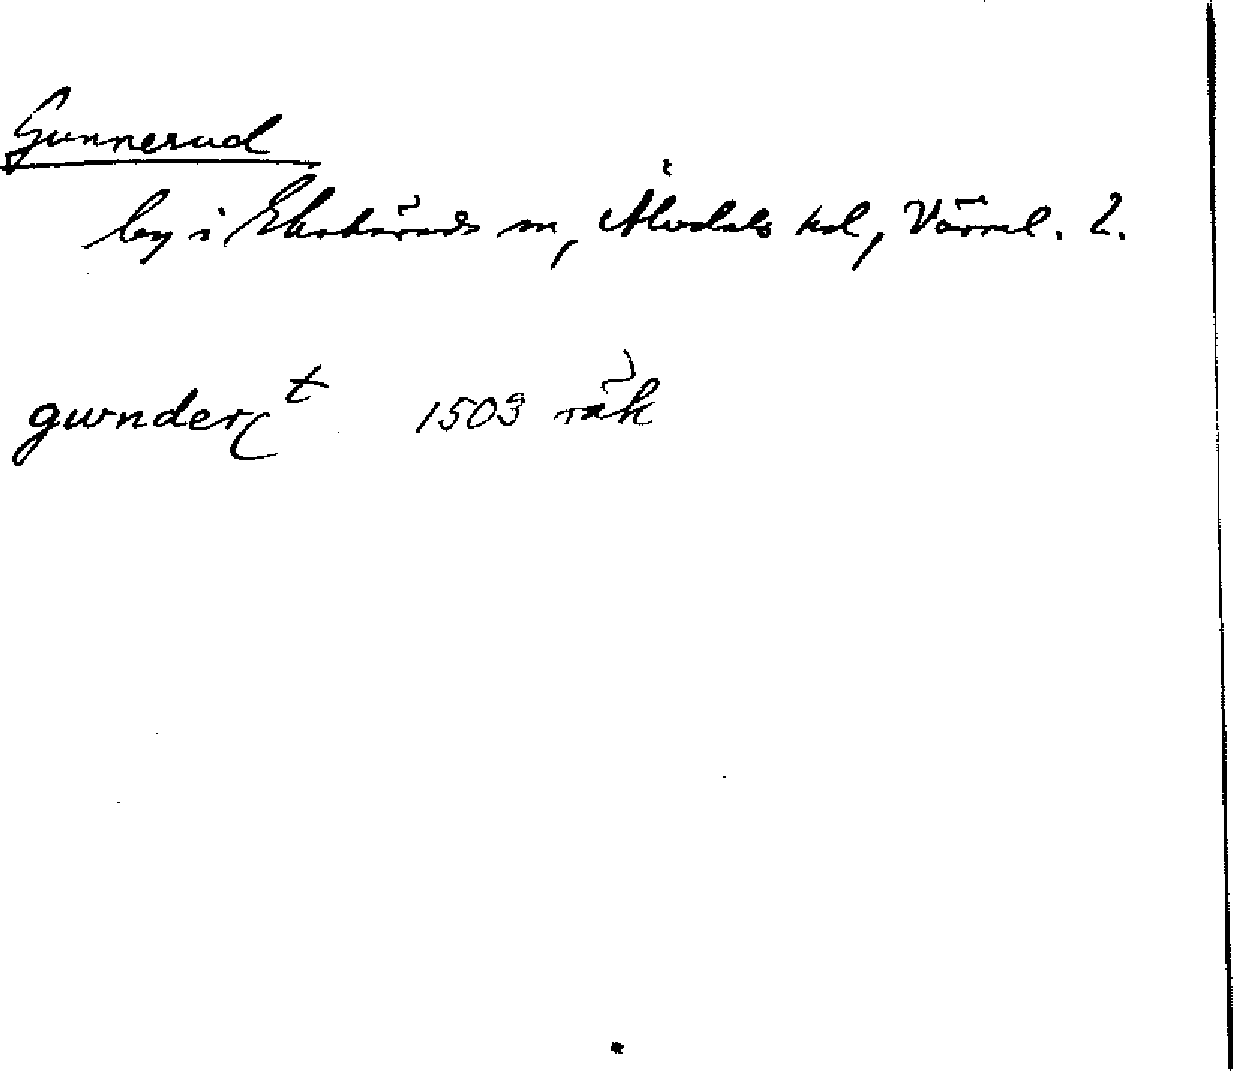 Gunnerud
by i Ekshärads sn, Älvdals hd, Värml. l.
gwnder t 1503 räk